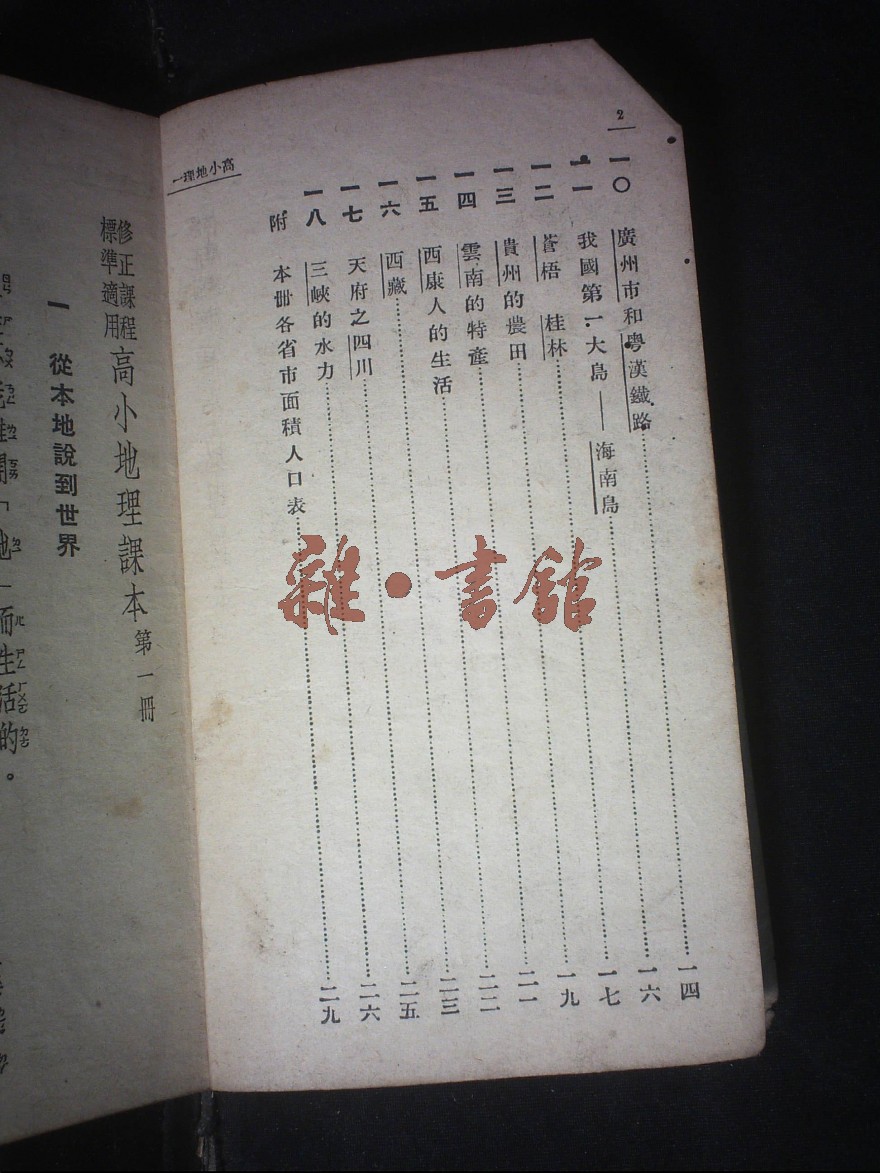 2
一〇 廣州市和粵漢鐵路……一四
一一 我國第一大島——海南島……一六
一二 蒼梧 桂林……一七
一三 貴州的農田……一九
一四 雲南的特產……二一
一五 西康人的生活……二二
一六 西藏……二三
一七 天府之四川……二五
一八 三峽的水力……二六
附 本冊各省市面積人口表……二九
高小地理一
雜·書館
修正課程標準適用 高小地理課本 第一冊
一 從本地說到世界
開「地」而生活的。